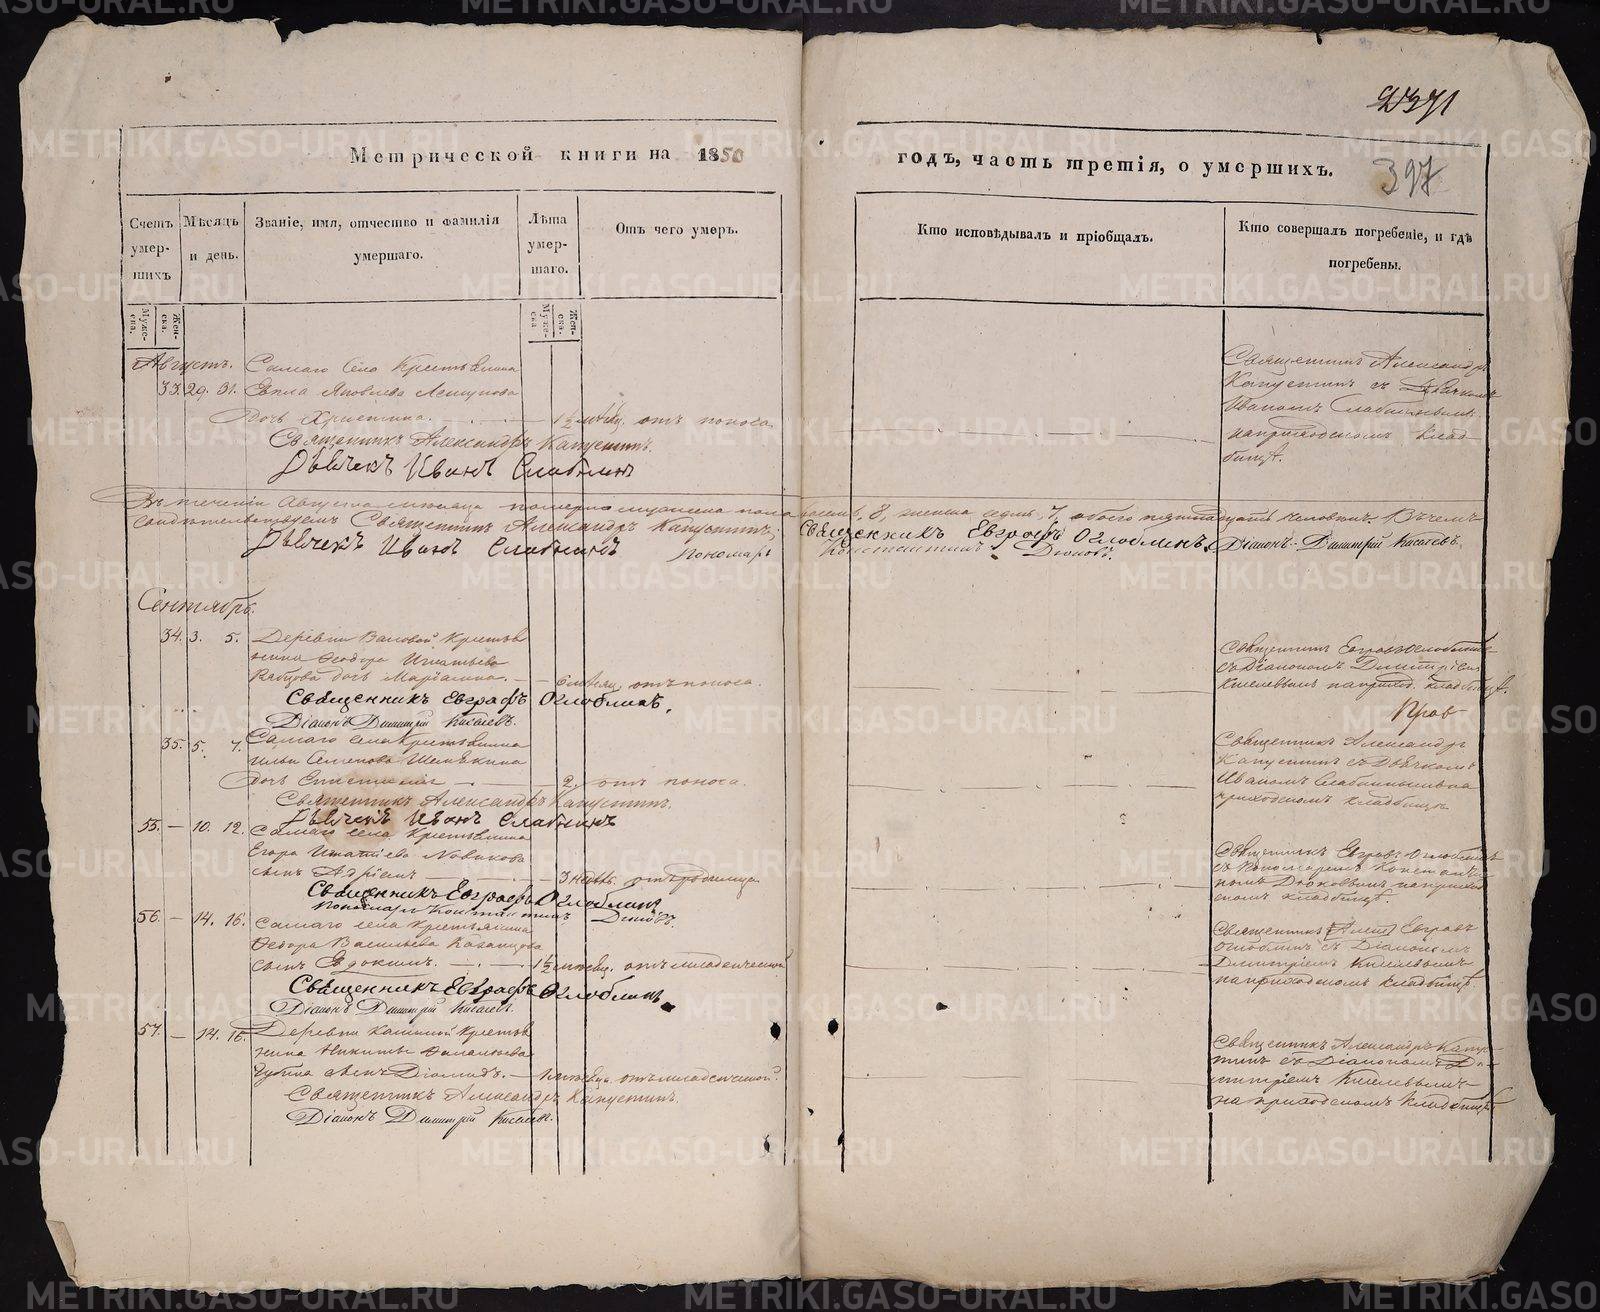 371
397
Метрической книги на 1850
годъ, часть третія, о умершихъ.
Счетъ умер- шихъ
Мѣсяцъ и день.
Званіе, имя, отчество и фамилія умершаго.
Лѣта умер- шаго.
Отъ чего умеръ.
Кто исповѣдывалъ и пріобщалъ.
Кто совершалъ погребеніе, и гдѣ погребены.
Муже- ска. Жен- ска.
Муже- ска Жен- ска.
Августъ. Самаго Села Крестьянина
33. 29. 31. Яковлева
дочь Христина. 1½ мѣсяц. отъ поноса
Священникъ Александръ Капустинъ.
Дьячекъ Иванъ Слабнинъ
Священникъ Александръ
Капустинъ съ Дьячкомъ
Иваномъ Слабнинымъ
на приходскомъ клад-
бищѣ.
Въ теченіи Августа мѣсяца померло мужеска пола восемь, 8, женска седмь, 7, обоего пятнадцать человѣкъ. Въ чемъ
свидѣтельствуемъ Священникъ Александръ Капустинъ, Священникъ Евграфъ Оглоблинъ, Діаконъ Димитрій Киселевъ.
Дьячекъ Иванъ Слабнинъ Пономарь Константинъ
Сентябрь.
34. 3. 5. Деревни Крестья
нина Ѳеодора Игнатьева
дочь Маріамна. 6 мѣсяц. отъ поноса.
Священникъ Евграфъ Оглоблинъ,
Діаконъ Димитрій Киселевъ.
Священникъ Евграфъ Оглоблинъ
съ Діакономъ Димитріемъ
Киселевымъ на приход. кладбищѣ.
35. 5. 7. Самаго села Крестьянина
Ильи Семенова
дочь 2. отъ поноса.
Священникъ Александръ Капустинъ.
Дьячекъ Иванъ Слабнинъ
Священникъ Александръ
Капустинъ съ Дьячкомъ
Иваномъ Слабнинымъ на
приходскомъ кладбищѣ
55. — 10. 12. Самаго села Крестьянина
Егора Игнатіева Новикова
сынъ Адріанъ 3 недѣл. отъ родимца
Священникъ Евграфъ Оглоблинъ
Пономарь Константинъ
Священникъ Евграфъ Оглоблинъ
съ Пономаремъ Констан-
на приход
скомъ кладбищѣ.
56. — 14. 16. Самаго села Крестьянина
Ѳедора Васильева Казанцова
сынъ Евдокимъ. 1½ мѣсяц. отъ младенческой
Священникъ Евграфъ Оглоблинъ
Діаконъ Димитрій Киселевъ.
Священникъ Евграфъ
Оглоблинъ съ Діакономъ
Димитріемъ Киселевымъ
на приходскомъ кладбищѣ.
57. — 14. 16. Деревни Крестья
нина Никиты
Губина сынъ Діомидъ. 1 мѣсяца. отъ младенческой.
Священникъ Александръ Капустинъ.
Діаконъ Димитрій Киселевъ.
Священникъ Александръ Капус-
тинъ съ Діакономъ Ди-
митріемъ Киселевымъ
на приходскомъ кладбищѣ
METRIKI.GASO-URAL.RU